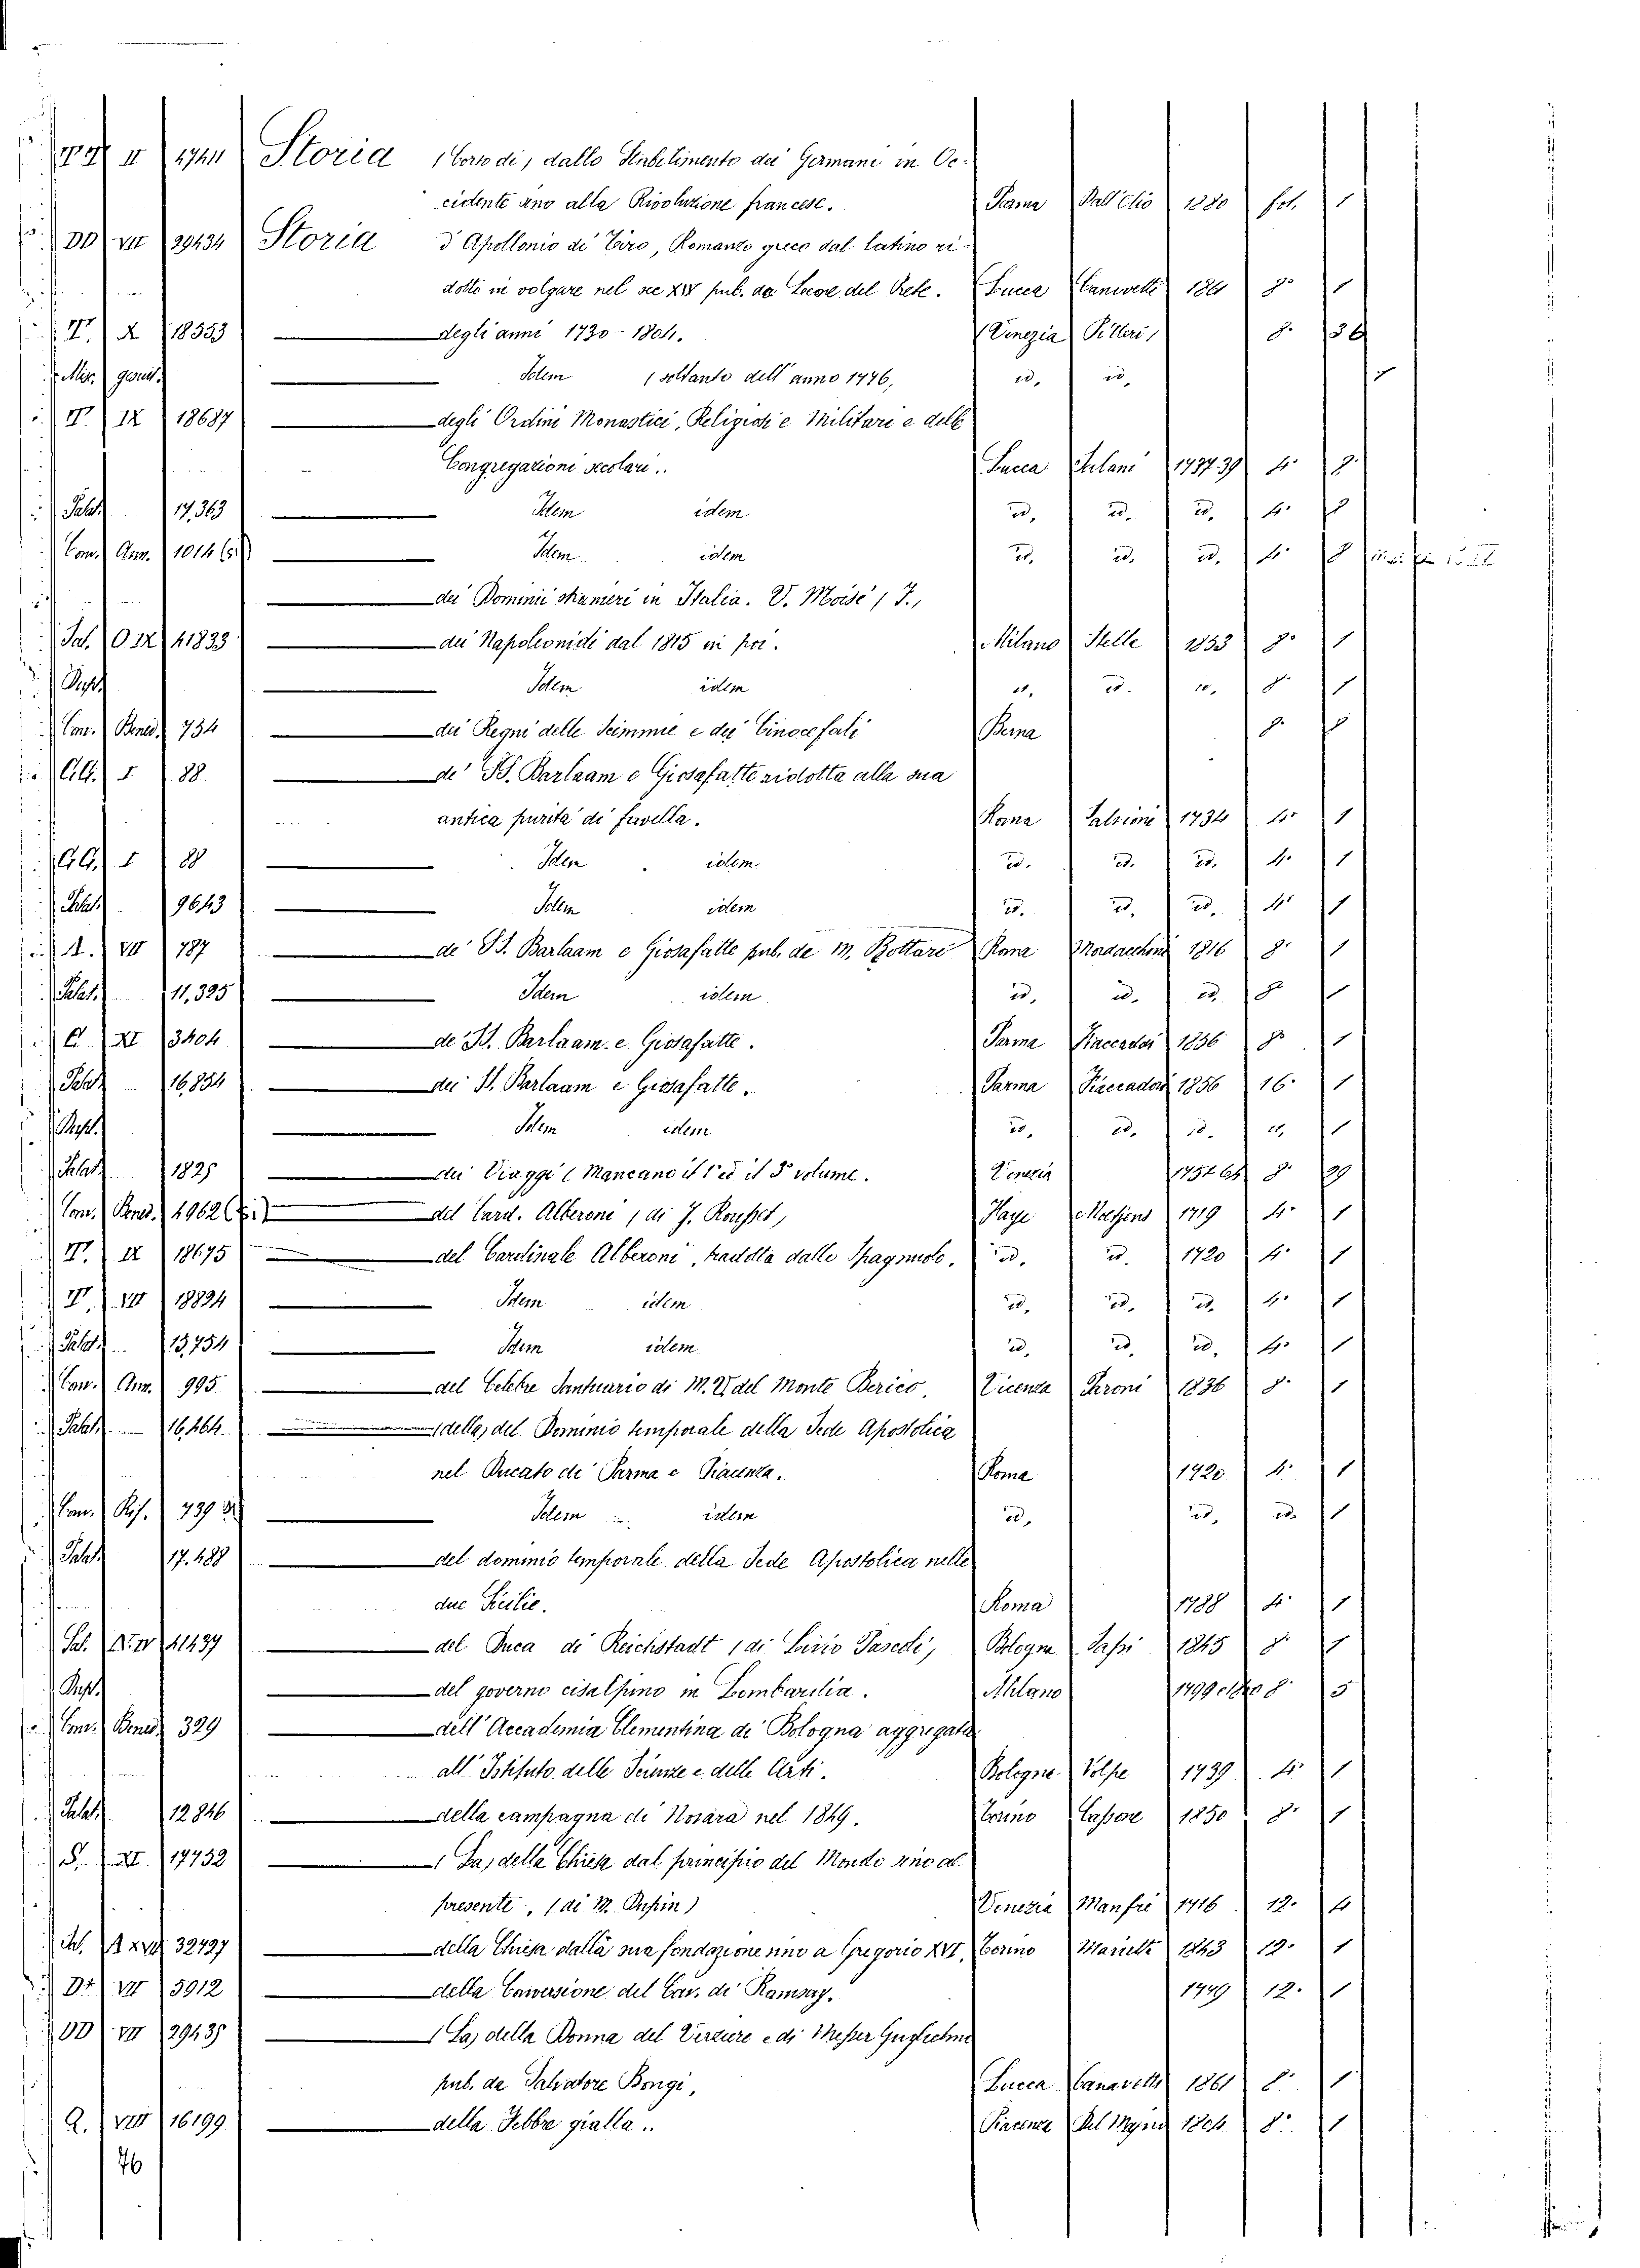 II 4741 Storia (Corso di) dallo Stabilimento dei Germani in Oc-
cidente sino alla Rivoluzione francese. Parma Dall'Elio 1880 fol. 1
DD VII 29434 Storia d'Apollonio di Tiro, Romanzo greco dal latino ri-
dotto in volgare nel sec XIV pub. da Leone del Prete. Lucca Canovetti 1861 8° 1
X 18353 degli anni 1730-1804. Venezia Pitteri 8. 
Misc. gener. Idem (soltanto dell'anno 1776) id. id.
IX 18687 degli Ordini Monastici, Religiosi e Militari e delle
Congregazioni secolari. Lucca 1737.39 4.
Palat. 17,363 Idem idem id. id. id. 4. 8
Con. Ann. 1014 Idem idem id. id. id. 4. 8
dei Dominii stranieri in Italia. V. Moisé (F.)
Sal. O IX 41833 dei Napoleonidi dal 1815 in poi. Milano Stella 1853 8° 1
Idem idem id. id. id. 8° 1
Con. Bened. 734 dei Regni delle Scimmie e dei Cinocefali Berna 8.
I 88 de' SS. Barlaam e Giosafatte ridotta alla sua
antica purità di favella. Roma Salvioni 1734 4° 1
I 88 Idem idem id. id. id. 4. 1
Palat. 9643 Idem idem id. id. id. 4° 1
A. VII 787 de' SS. Barlaam e Giosafatte pub. da M. Bottari Roma Mordacchini 1816 8° 1
Palat. 11,395 Idem idem id. id. id. 8° 1
C XI 3404 de' SS. Barlaam e Giosafatte. Parma Fiaccadori 1856 8° 1
Palat. 16,854 dei SS. Barlaam e Giosafatte. Parma Fiaccadori 1856 16. 1
Idem idem id. id. id. id. 1
Palat. 1825 dei Viaggi (Mancano il 1° ed il 5° volume. Venezia 8. 39
Con. Bened. 4962 del Card. Alberoni (di J. Rousset) Haye Moetjens 1719 4° 1
IX 18675 del Cardinale Alberoni, tradotta dallo Spagnuolo. id. id. 1720 4° 1
VII 18894 Idem idem id. id. id. 4° 1
Palat. 13,754 Idem idem id. id. id. 4° 1
Con. Ann. 995 del Celebre Santuario di M. V. del Monte Berico. Vicenza Paroni 1836 8. 1
Palat. 16,464 (della) del Dominio temporale della Sede Apostolica
nel Ducato di Parma e Piacenza. Roma 1720 4. 1
Con. Rif. 739 Idem idem id. id. id. 1
Palat. 17.488 del dominio temporale della Sede Apostolica nelle
due Sicilie. Roma 1788 4° 1
Sal. 41437 del Duca di Reichstadt (di Livio Pascoli) Bologna Sassi 1845 8. 1
del governo cisalpino in Lombardia. Milano 8. 5
Con. Bened. 329 dell'Accademia Clementina di Bologna aggregata
all'Istituto delle Scienze e delle Arti. Bologna Volpe 1739 4° 1
Palat. 12846 della campagna di Novara nel 1849. Torino Cassone 1850 8° 1
S. XI 17752 (La) della Chiesa dal principio del Mondo sino al
presente, (di M. Dupin) Venezia Manfrè 1716 12. 4
Sal. A XVII 32727 della Chiesa dalla sua fondazione sino a Gregorio XVI. Torino Marietti 1843 12. 1
VII 5912 della Conversione del Cav. di Ramsay. 1749 12. 1
DD VII 29435 (La) della Donna del Verziere e di Messer Guglielmo
pub. da Salvatore Bongi, Lucca Canovetti 1861 8° 1
Q. VIII 16199 della Febbre gialla. Piacenza Del Majno 1804 8° 1
76